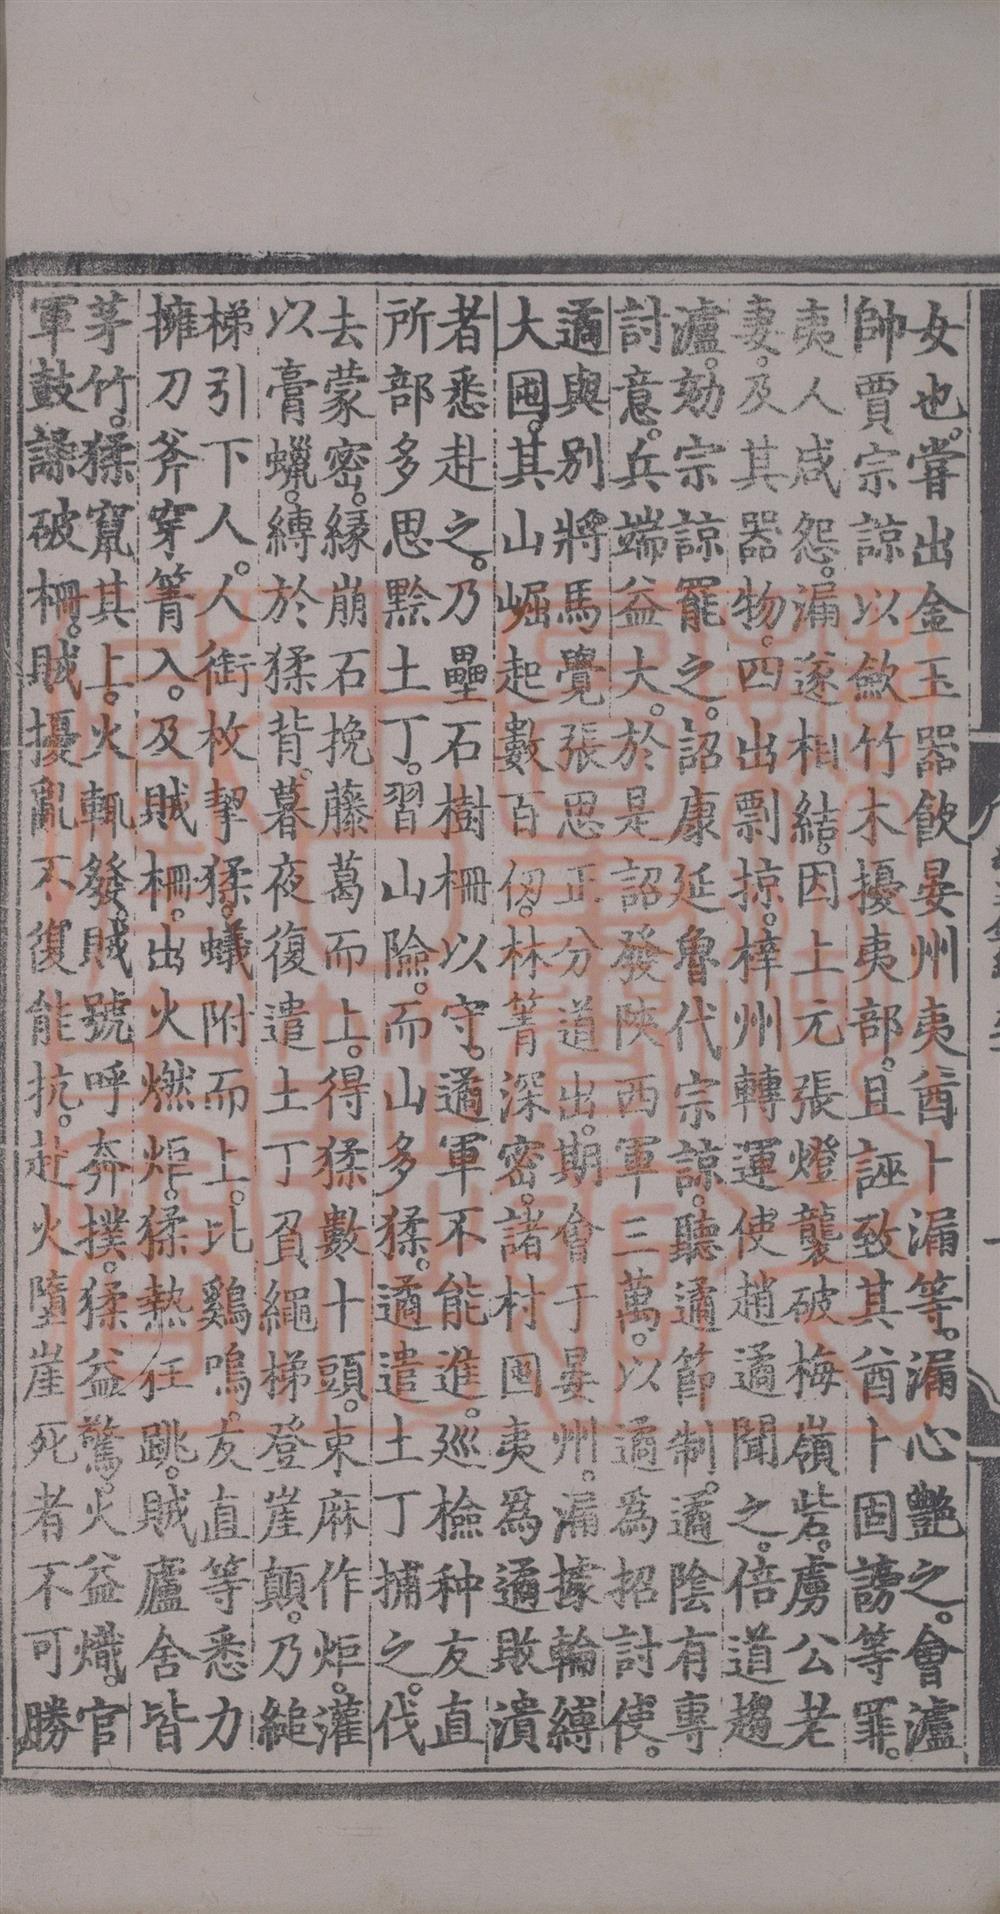 女也。嘗出金玉器飲晏州夷酋卜漏等。漏心艷之。會瀘
帥賈宗諒以斂竹木擾夷部。且誣致其酋卜固謗等罪。
夷人咸怨。漏遂相結。因上元張燈襲破梅嶺砦。虜公老
妻。及其器物。四出剽掠。梓州轉運使趙遹聞之。倍道趨
瀘。劾宗諒罷之。詔康延魯代宗諒。聽遹節制。遹陰有專
討意。兵端益大。於是詔發陝西軍三萬。以遹爲招討使。
遹與別將馬覺張思正分道出。期會于晏州。漏據輪縛
大囤。其山崛起數百仞。林箐深密。諸村囤夷爲遹敗潰
者悉赴之。乃壘石樹柵以守。遹軍不能進。巡檢种友直
所部多思黔土丁。習山險。而山多猱。遹遣土丁捕之。伐
去蒙密。緣崩石挽藤葛而上。得猱數十頭。束麻作炬。灌
以膏蠟。縛於猱背。暮夜復遣土丁負繩梯登崖顛。乃縋
梯引下人。人銜枚挈猱。蟻附而上。比鷄鳴。友直等悉力
擁刀斧穿箐入。及賊柵。出火燃炬。猱熱狂跳。賊廬舍皆
茅竹。猱竄其上。火輒發。賊號呼奔撲。猱益驚。火益熾。官
軍鼓譟破柵。賊擾亂不復能抗。赴火墮崖死者不可勝